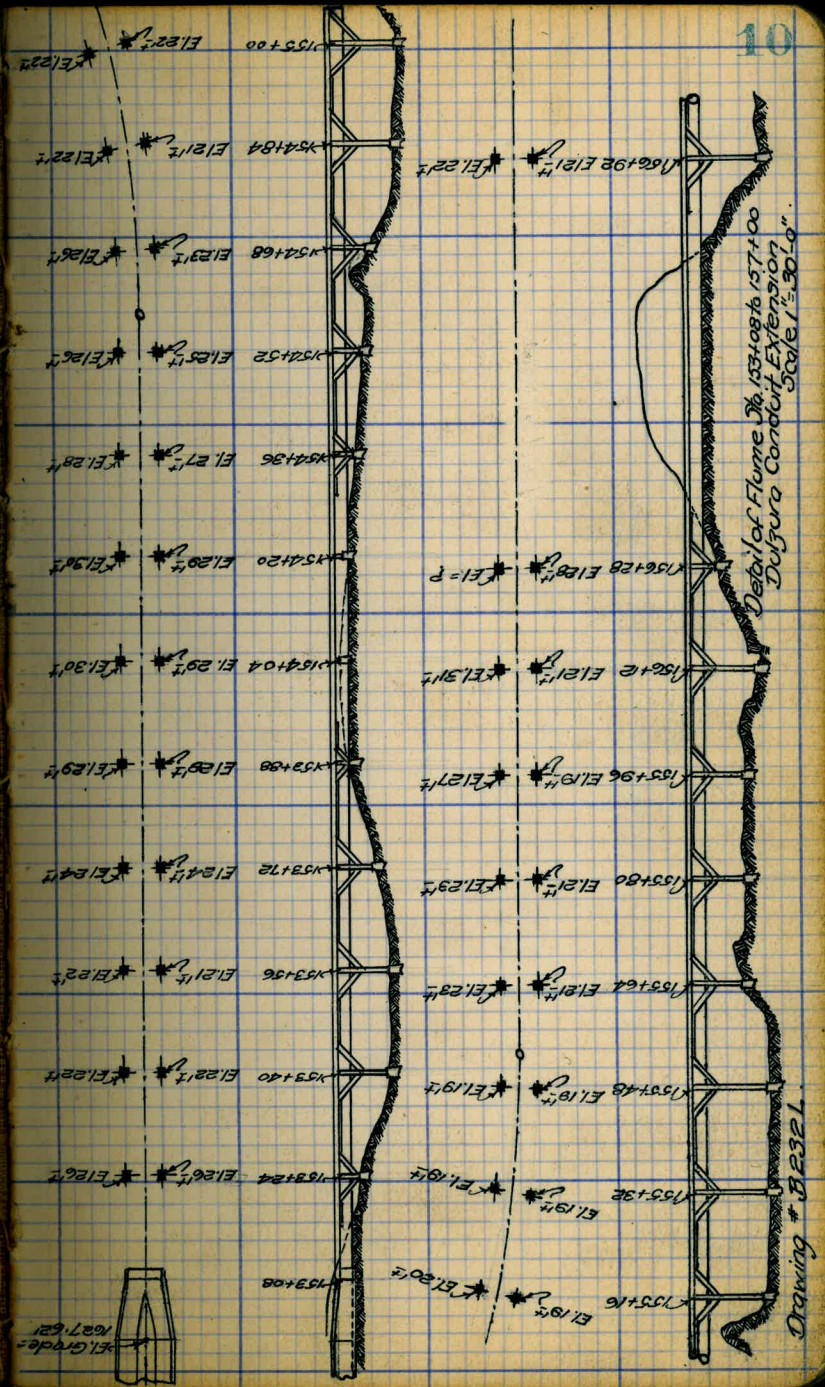 10
Detail of Flume Sta. 153+08 to 157+00
Dulzura Conduit Extension
Scale 1"=30'-0".
Drawing # B232L
El. Grade=
1627.621
153+08
153+24 El.26'± El.26'±
153+40 El.22'± El.22'±
153+56 El.21'± El.22'±
153+72 El.24'± El.24'±
153+88 El.29'± El.29'±
154+04 El.29'± El.30'±
154+20 El.29'± El.30'±
154+36 El.27'± El.28'±
154+52 El.25'± El.26'±
154+68 El.23'± El.26'±
154+84 El.21'± El.22'±
155+00 El.22'± El.22'±
155+16 El.19'± El.20'±
155+32 El.19'± El.19'±
155+48 El.19'± El.19'±
155+64 El.21'± El.23'±
155+80 El.21'± El.23'±
155+96 El.19'± El.27'±
156+12 El.21'± El.31'±
156+28 El.28'± El.=?
156+92 El.21'± El.22'±